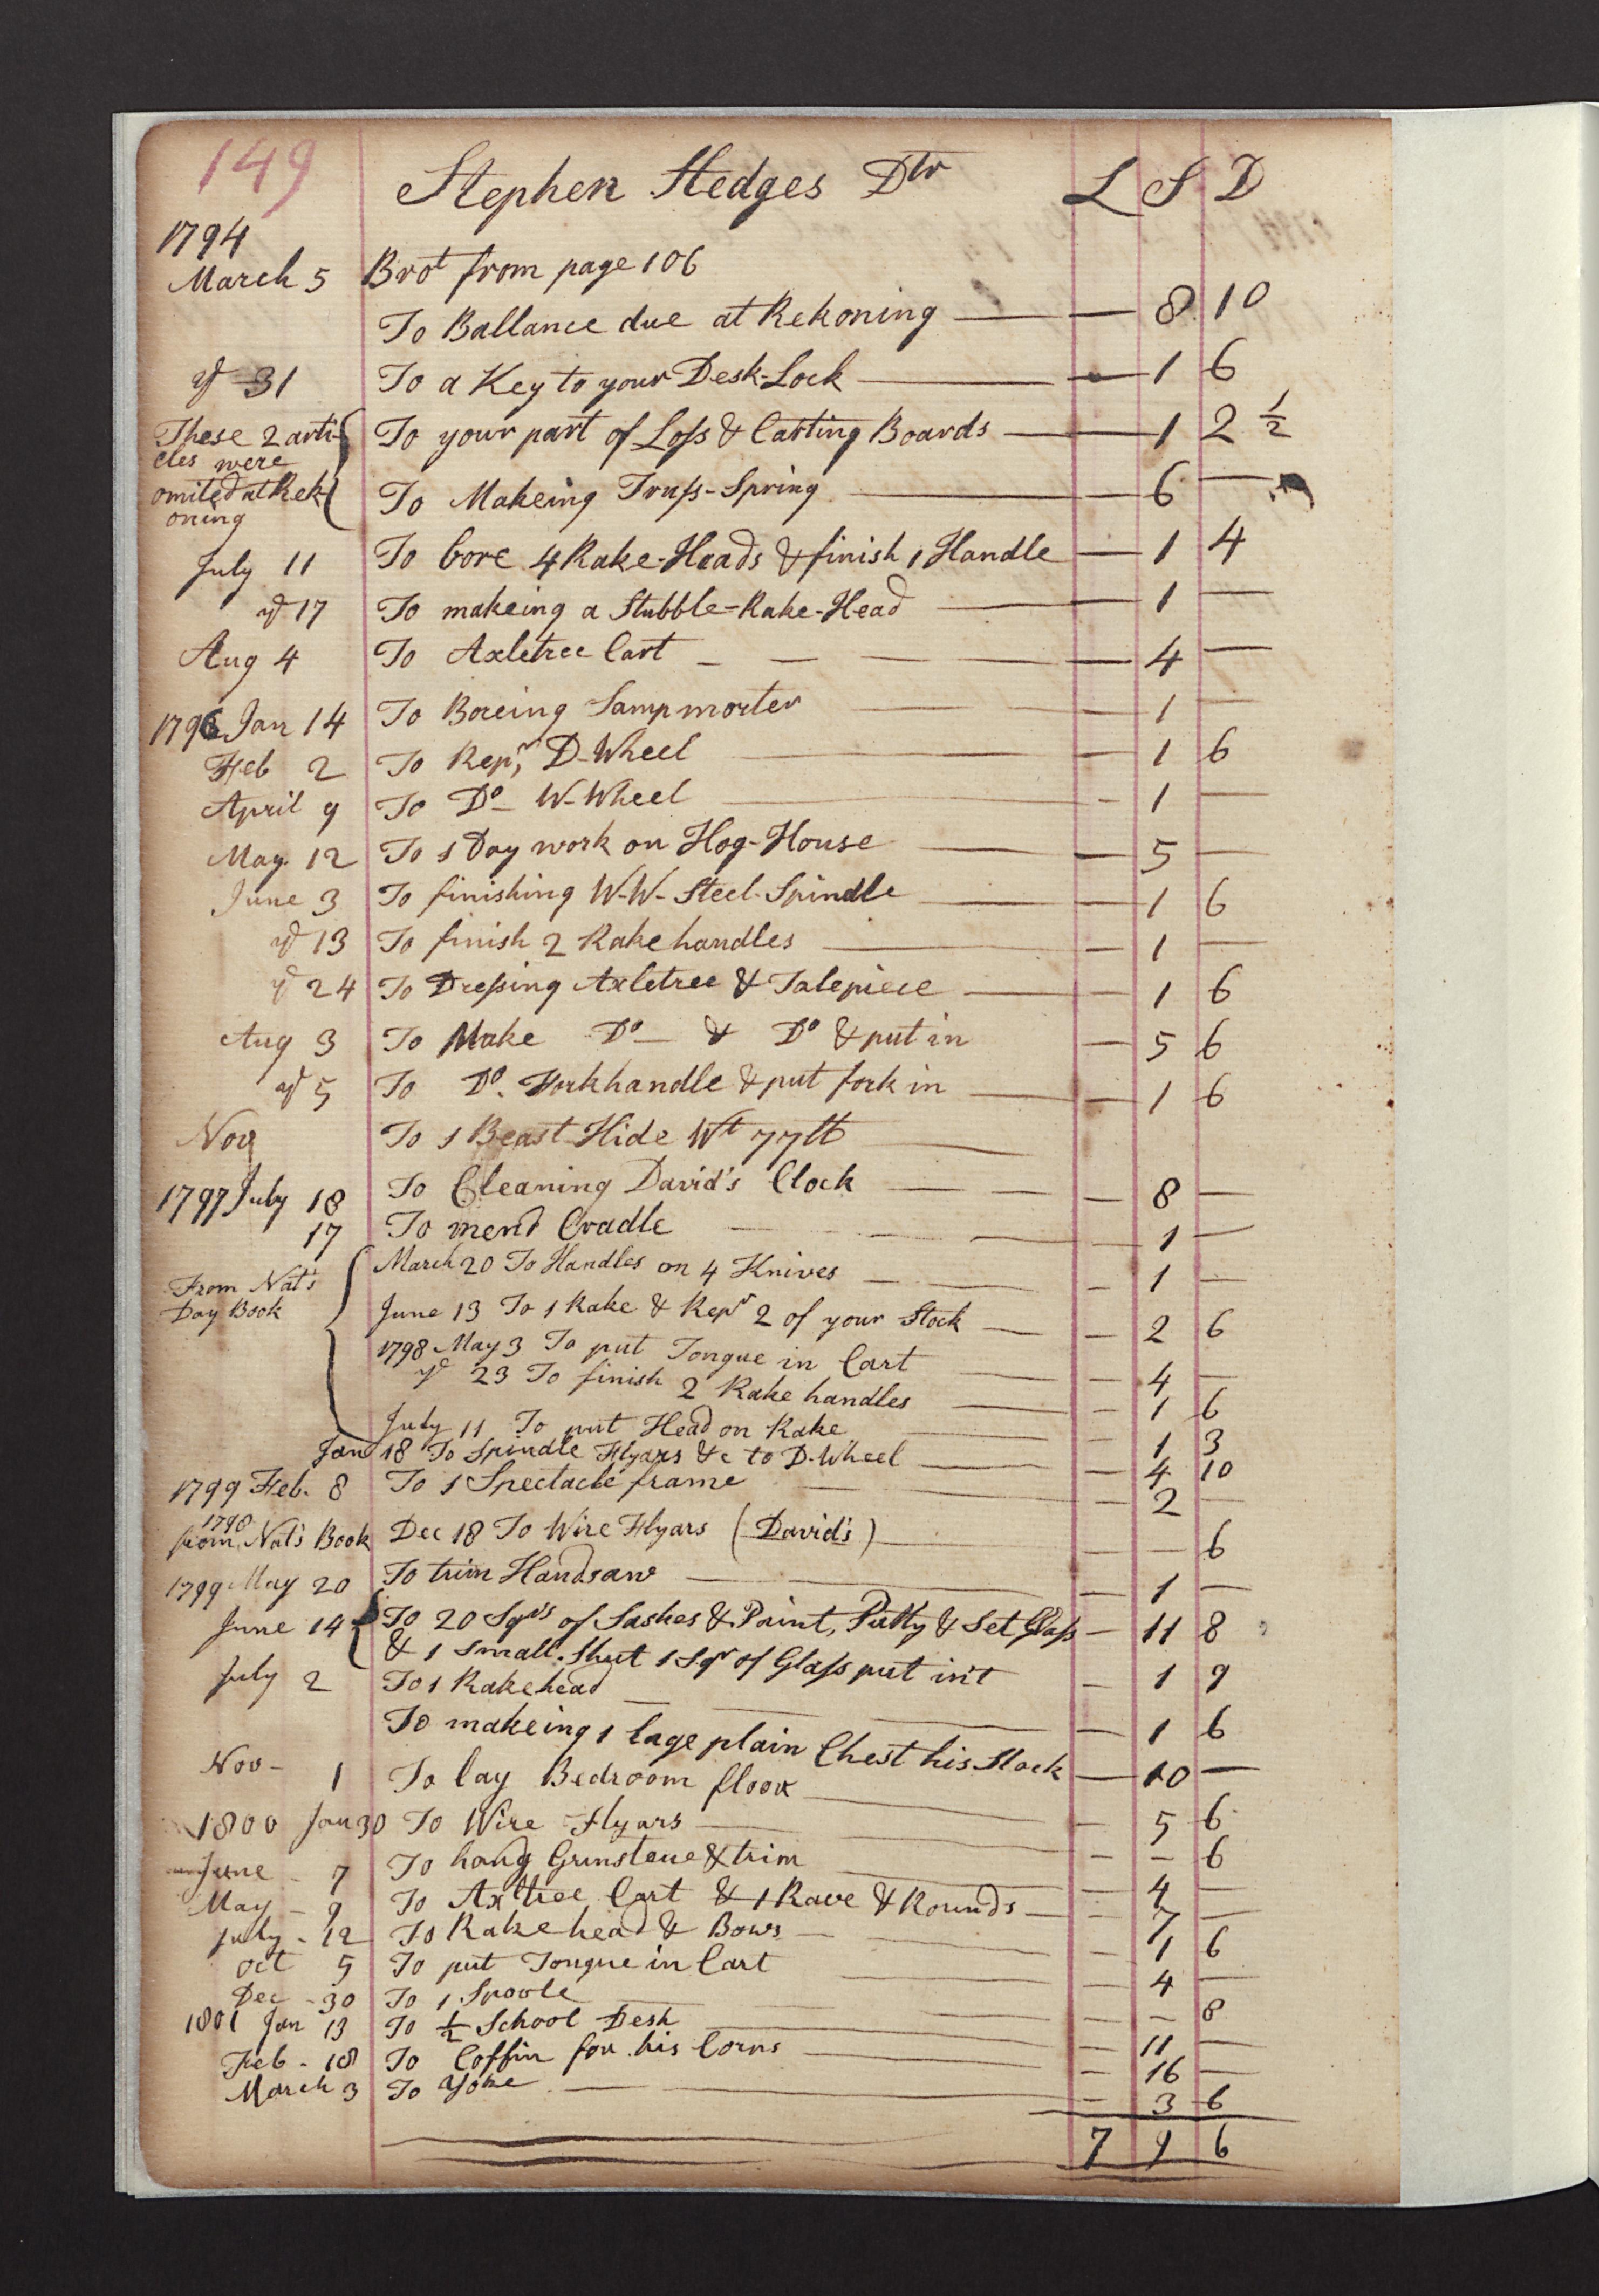 149
Stephen Hedges Dtr L S D
1794
March 5 Brot from page 106
To Ballance due at Rekoning — 8 10
yd 31 To a Key to your Desk-Lock — 1 6
These 2 arti- To your part of Loss & Carting Boards — 1 2 1/2
cles were
omited at Rek- To Makeing Truss-Spring — 6 —
oning
July 11 To bore 4 Rake-Heads & finish 1 Handle — 1 4
yd 17 To makeing a Stubble-Rake-Head 1 —
Aug 4 To Axletree Cart — 4 —
1796 Jan 14 To Boreing Sampmorter — 1 —
Feb 2 To Repr D-Wheel — 1 6
April 9 To Do W-Wheel — 1 —
May 12 To 1 Day work on Hog-House — 5 —
June 3 To finishing W-W-Steel-Spindle — 1 6
yd 13 To finish 2 Rake handles — 1 —
yd 24 To Dressing Axletree & Talepiece — 1 6
Aug 3 To Make Do — & Do & put in — 5 6
yd 5 To Do. Forkhandle & put fork in — 1 6
Nov To 1 Beast Hide Wt 77 lb
1797 July 18 To Cleaning David's Clock — 8 —
17 To mend Cradle — 1 —
From Nat's March 20 To Handles on 4 Knives — 1 —
Day Book June 13 To 1 Rake & Repr 2 of your Stock — 2 6
1798 May 3 To put Tongue in Cart — 4 —
yd 23 To finish 2 Rake handles — 1 6
July 11 To put Head on Rake 1 3
Jan 18 To Spindle Flyars &c to D-Wheel — 4 10
1799 Feb. 8 To 1 Spectacle frame — 2 —
1798
from Nat's Book Dec 18 To Wire Flyars (David's) — — 6
1799 May 20 To trim Handsaw — 1 —
June 14 To 20 Sqrs of Sashes & Paint, Putty & Set Glass — 11 8
& 1 small Shut 1 Sqr of Glass put in't — 1 9
July 2 To 1 Rakehead — 1 6
To makeing 1 large plain Chest his Stock — 10 —
Nov - 1 To lay Bedroom floor — 5 6
1800 Jan 30 To Wire Flyars — — 6
June - 7 To hang Grinstone & trim — 4 —
May - 9 To Axtree Cart & 1 Rave & Rounds — 7 —
July - 12 To Rake head & Bows — 1 6
Oct 5 To put Tongue in Cart — 4 —
Dec - 30 To 1 Spoole — — 8
1801 Jan 13 To 1/2 School Desk — 11 —
Feb - 18 To Coffin for his Corns — 16 —
March 3 To a Yoke — 3 6
7 9 6